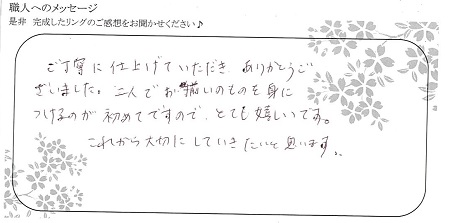 職人へのメッセージ
是非 完成したリングのご感想をお聞かせください♪
ご丁寧に仕上げていただき、ありがとうご
ざいました。二人でお揃いのものを身に
つけるのが初めてですので、とても嬉しいです。
これから大切にしていきたいと思います。